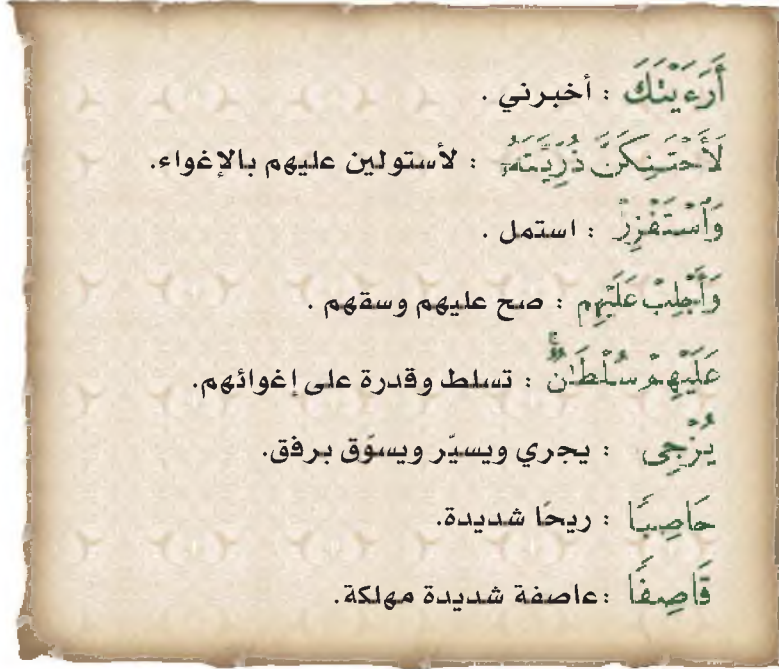 أَرَءَيْتَكَ : أخبرني .
لَأَحْتَنِكَنَّ ذُرِّيَّتَهُۥ : لأستولين عليهم بالإغواء.
وَٱسْتَفْزِزْ : استمل .
وَأَجْلِبْ عَلَيْهِم : صح عليهم وسقهم .
عَلَيْهِمْ سُلْطَٰنٌ ۚ : تسلط وقدرة على إغوائهم.
يُزْجِى : يجري ويسيّر ويسوّق برفق.
حَاصِبًا : ريحًا شديدة.
قَاصِفًا : عاصفة شديدة مهلكة.